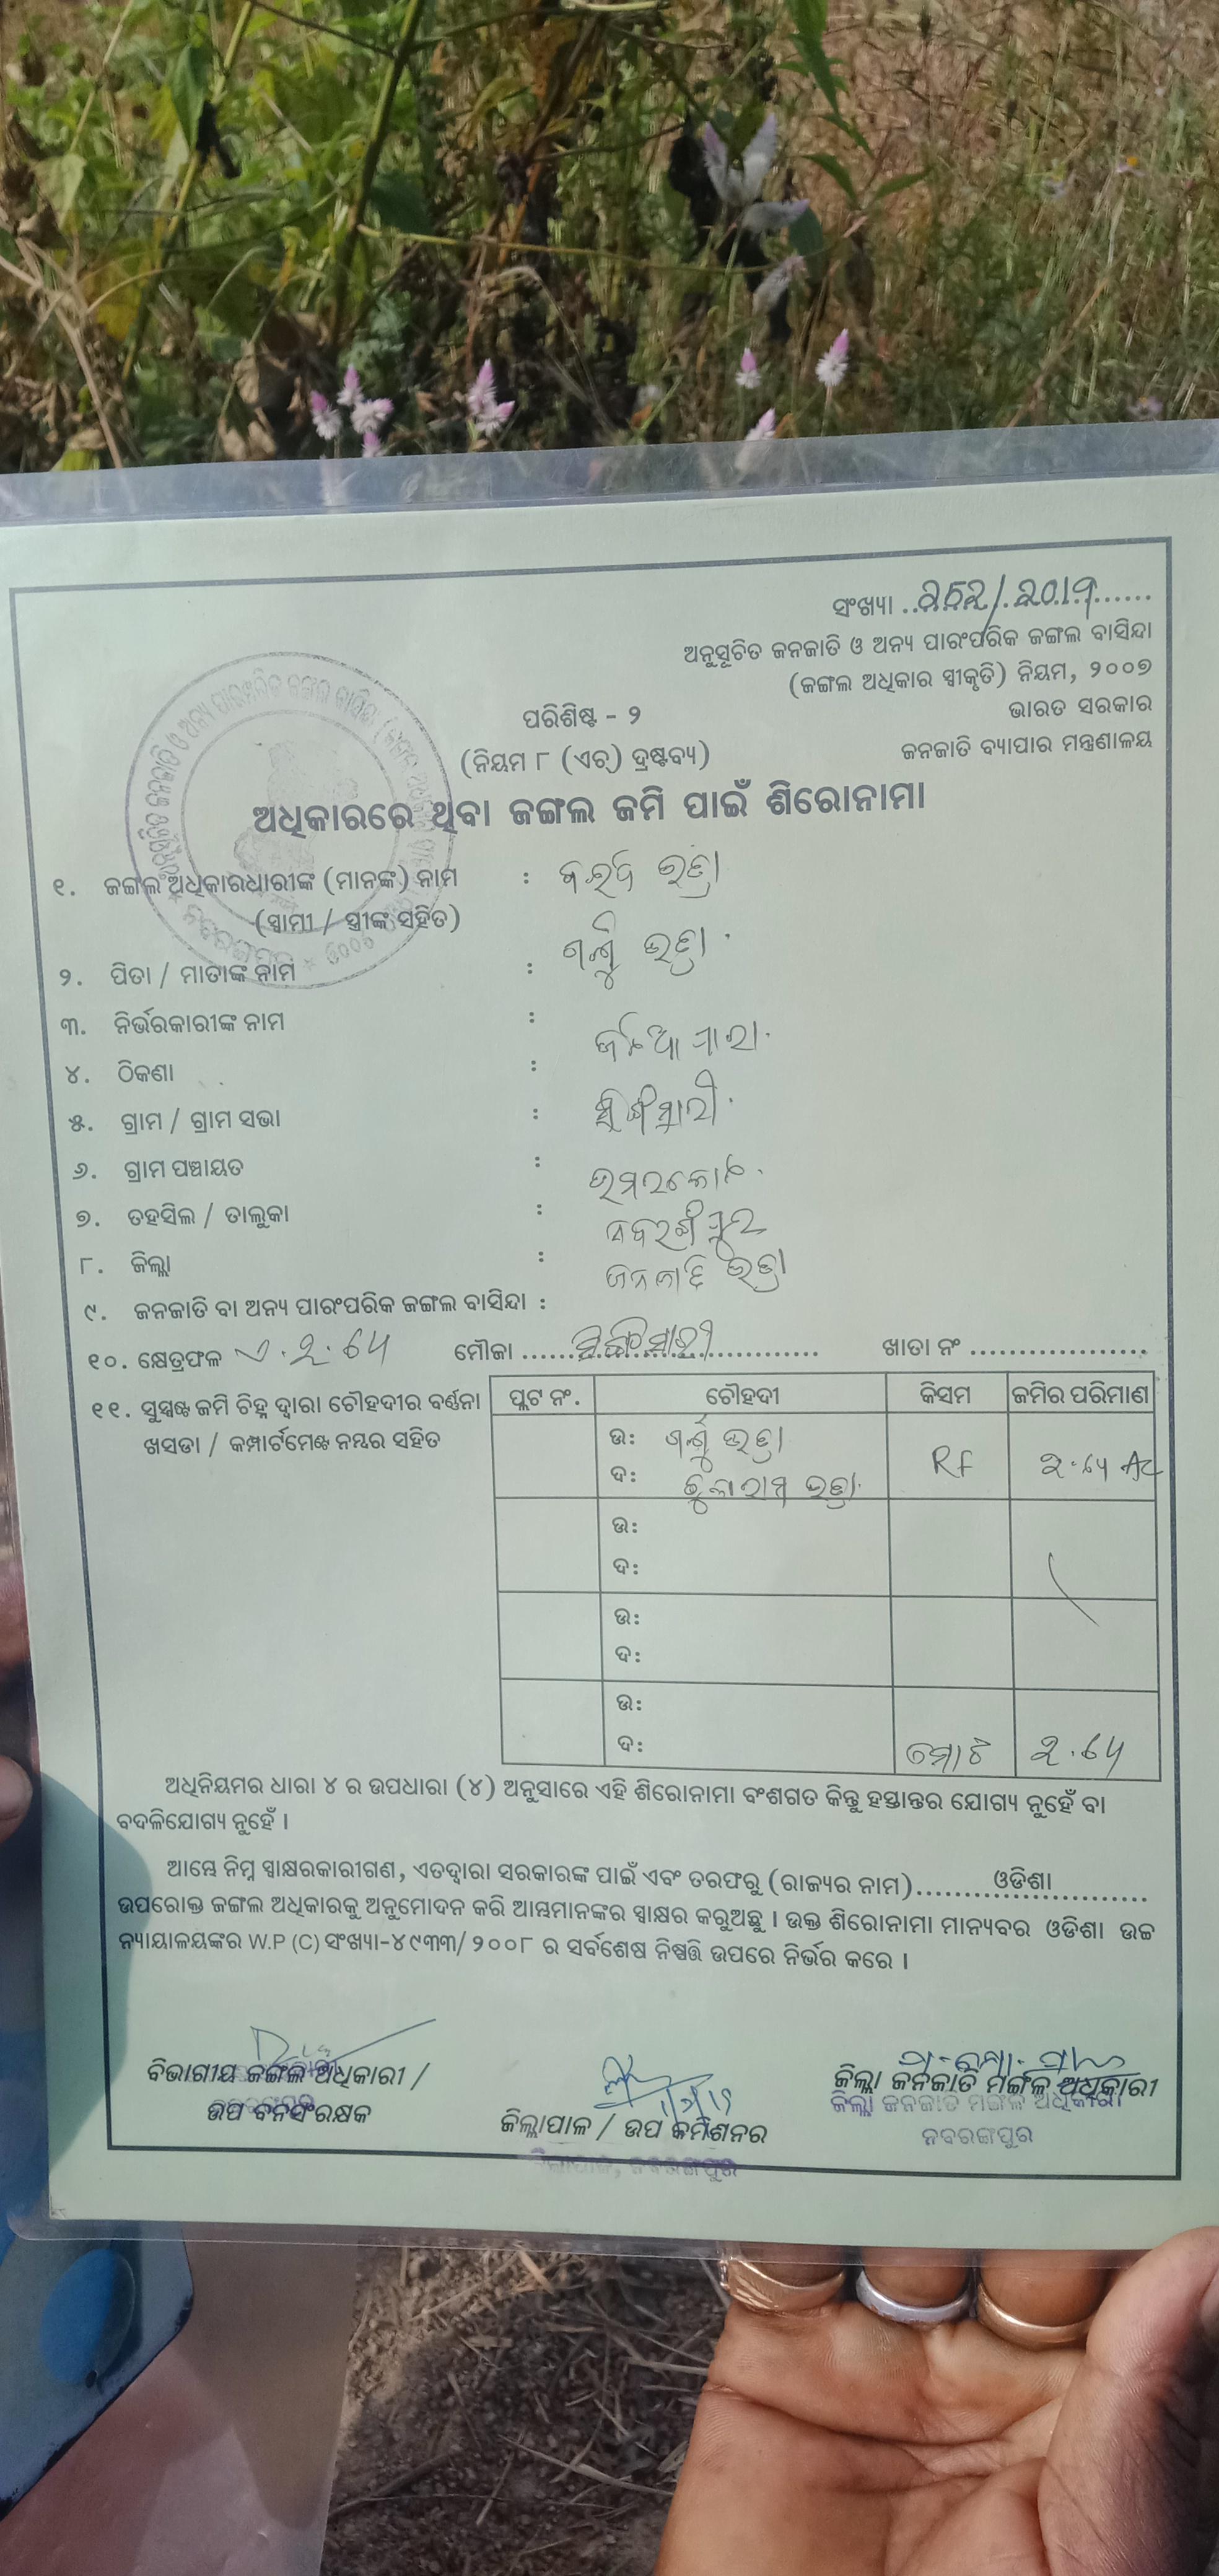 ସଂଖ୍ୟା
ଅନୁସୂଚିତ ଜନଜାତି ଓ ଅନ୍ୟ ପାରଂପରିକ ଜଙ୍ଗଲ ବାସିନ୍ଦା
(ଜଙ୍ଗଲ ଅଧିକାର ସ୍ୱୀକୃତି) ନିୟମ, ୨୦୦୭
ଭାରତ ସରକାର
ଜନଜାତି ବ୍ୟାପାର ମନ୍ତ୍ରଣାଳୟ
ପରିଶିଷ୍ଟ - ୨
(ନିୟମ ୮ (ଏଚ୍) ଦ୍ରଷ୍ଟବ୍ୟ)
ଅଧିକାରରେ ଥିବା ଜଙ୍ଗଲ ଜମି ପାଇଁ ଶିରୋନାମା
୧. ଜଙ୍ଗଲ ଅଧିକାରଧାରୀଙ୍କ (ମାନଙ୍କ) ନାମ :
(ସ୍ୱାମୀ / ସ୍ତ୍ରୀଙ୍କ ସହିତ)
୨. ପିତା / ମାତାଙ୍କ ନାମ :
୩. ନିର୍ଭରକାରୀଙ୍କ ନାମ :
୪. ଠିକଣା :
୫. ଗ୍ରାମ / ଗ୍ରାମ ସଭା :
୬. ଗ୍ରାମ ପଞ୍ଚାୟତ : ଉମରକୋଟ
୭. ତହସିଲ / ତାଲୁକା : ନବରଙ୍ଗପୁର
୮. ଜିଲ୍ଲା :
୯. ଜନଜାତି ବା ଅନ୍ୟ ପାରଂପରିକ ଜଙ୍ଗଲ ବାସିନ୍ଦା :
୧୦. କ୍ଷେତ୍ରଫଳ ଏ.୨.୬୫ ମୌଜା ଖାତା ନଂ
୧୧. ସୁସ୍ପଷ୍ଟ ଜମି ଚିହ୍ନ ଦ୍ୱାରା ଚୌହଦୀର ବର୍ଣ୍ଣନା
ଖସଡା / କମ୍ପାର୍ଟମେଣ୍ଟ ନମ୍ବର ସହିତ
ପ୍ଲଟ ନଂ. ଚୌହଦୀ କିସମ ଜମିର ପରିମାଣ
ଉ: ଭତ୍ରା
ଦ: ଭତ୍ରା RF ୨.୬୫ Ac
ଉ:
ଦ:
ଉ:
ଦ:
ଉ:
ଦ: ମୋଟ ୨.୬୫
ଅଧିନିୟମର ଧାରା ୪ ର ଉପଧାରା (୪) ଅନୁସାରେ ଏହି ଶିରୋନାମା ବଂଶଗତ କିନ୍ତୁ ହସ୍ତାନ୍ତର ଯୋଗ୍ୟ ନୁହେଁ ବା
ବଦଳିଯୋଗ୍ୟ ନୁହେଁ ।
ଆମ୍ଭେ ନିମ୍ନ ସ୍ୱାକ୍ଷରକାରୀଗଣ, ଏତଦ୍ୱାରା ସରକାରଙ୍କ ପାଇଁ ଏବଂ ତରଫରୁ (ରାଜ୍ୟର ନାମ) ଓଡିଶା
ଉପରୋକ୍ତ ଜଙ୍ଗଲ ଅଧିକାରକୁ ଅନୁମୋଦନ କରି ଆମ୍ଭମାନଙ୍କର ସ୍ୱାକ୍ଷର କରୁଅଛୁ । ଉକ୍ତ ଶିରୋନାମା ମାନ୍ୟବର ଓଡିଶା ଉଚ୍ଚ
ନ୍ୟାୟାଳୟଙ୍କର W.P (C) ସଂଖ୍ୟା-୪୯୩୩/୨୦୦୮ ର ସର୍ବଶେଷ ନିଷ୍ପତ୍ତି ଉପରେ ନିର୍ଭର କରେ ।
ବିଭାଗୀୟ ଜଙ୍ଗଲ ଅଧିକାରୀ /
ଉପ ବନସଂରକ୍ଷକ
ଜିଲ୍ଲାପାଳ / ଉପ କମିଶନର
ଜିଲ୍ଲାପାଳ, ନବରଙ୍ଗପୁର
ଜିଲ୍ଲା ଜନଜାତି ମଙ୍ଗଳ ଅଧିକାରୀ
ଜିଲ୍ଲା ଜନଜାତି ମଙ୍ଗଳ ଅଧିକାରୀ
ନବରଙ୍ଗପୁର